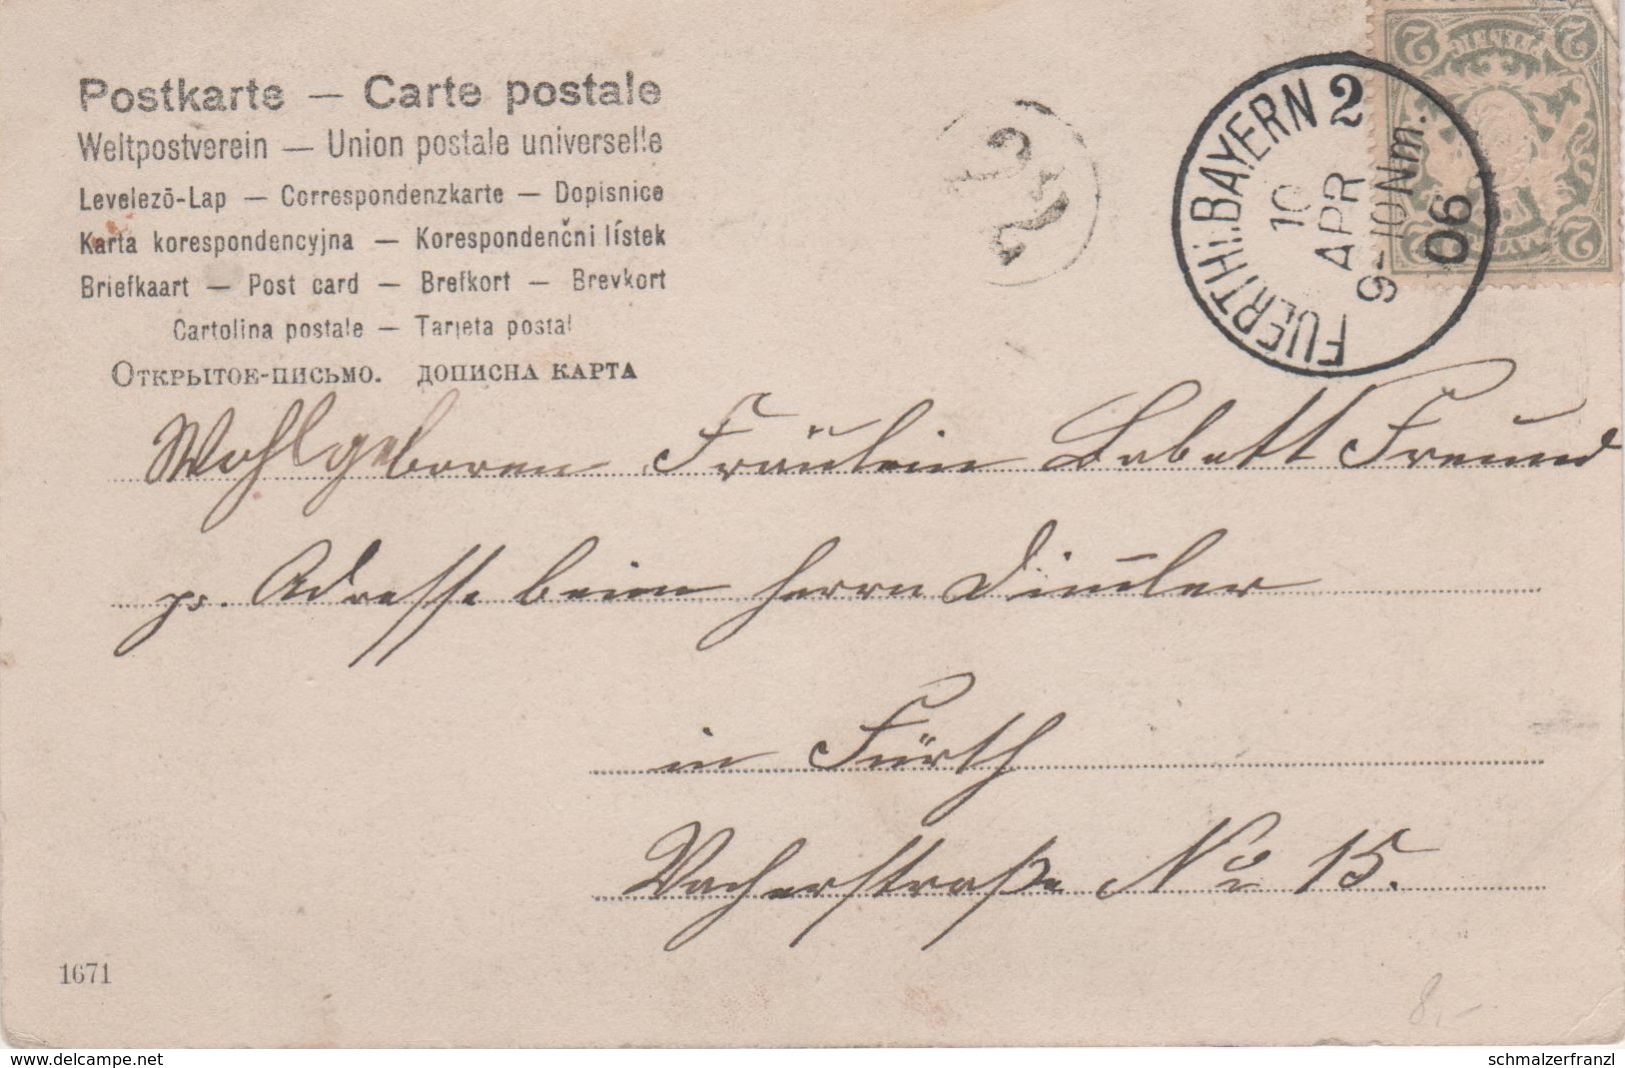 Postkarte — Carte postale
Weltpostverein — Union postale universelle
Levelező-Lap — Correspondenzkarte — Dopisnice
Karta korespondencyjna — Korespondenčni lístek
Briefkaart — Post card — Brefkort — Brevkort
Cartolina postale — Tarjeta postal
Открытое-письмо. дописна карта
FUERTH i. BAYERN 2
10
APR
9-10 Nm.
06
2 2
BAYERN
2 2
Wohlgeboren Fräulein Babett Freund
pr. Adresse beim Herrn
in Fürth
Vacherstraße No 15.
1671
8,-
delcampe.net
schmalzerfranzl